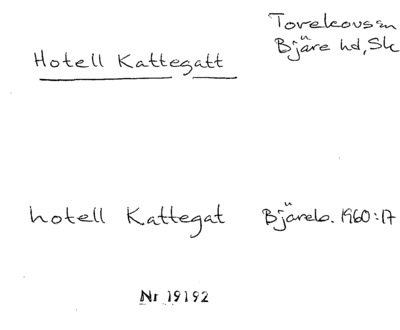 Torekovs sn
Bjäre hd, Sk
Hotell Kattegatt
hotell Kattegat Bjäreb. 1960:17
Nr 19192